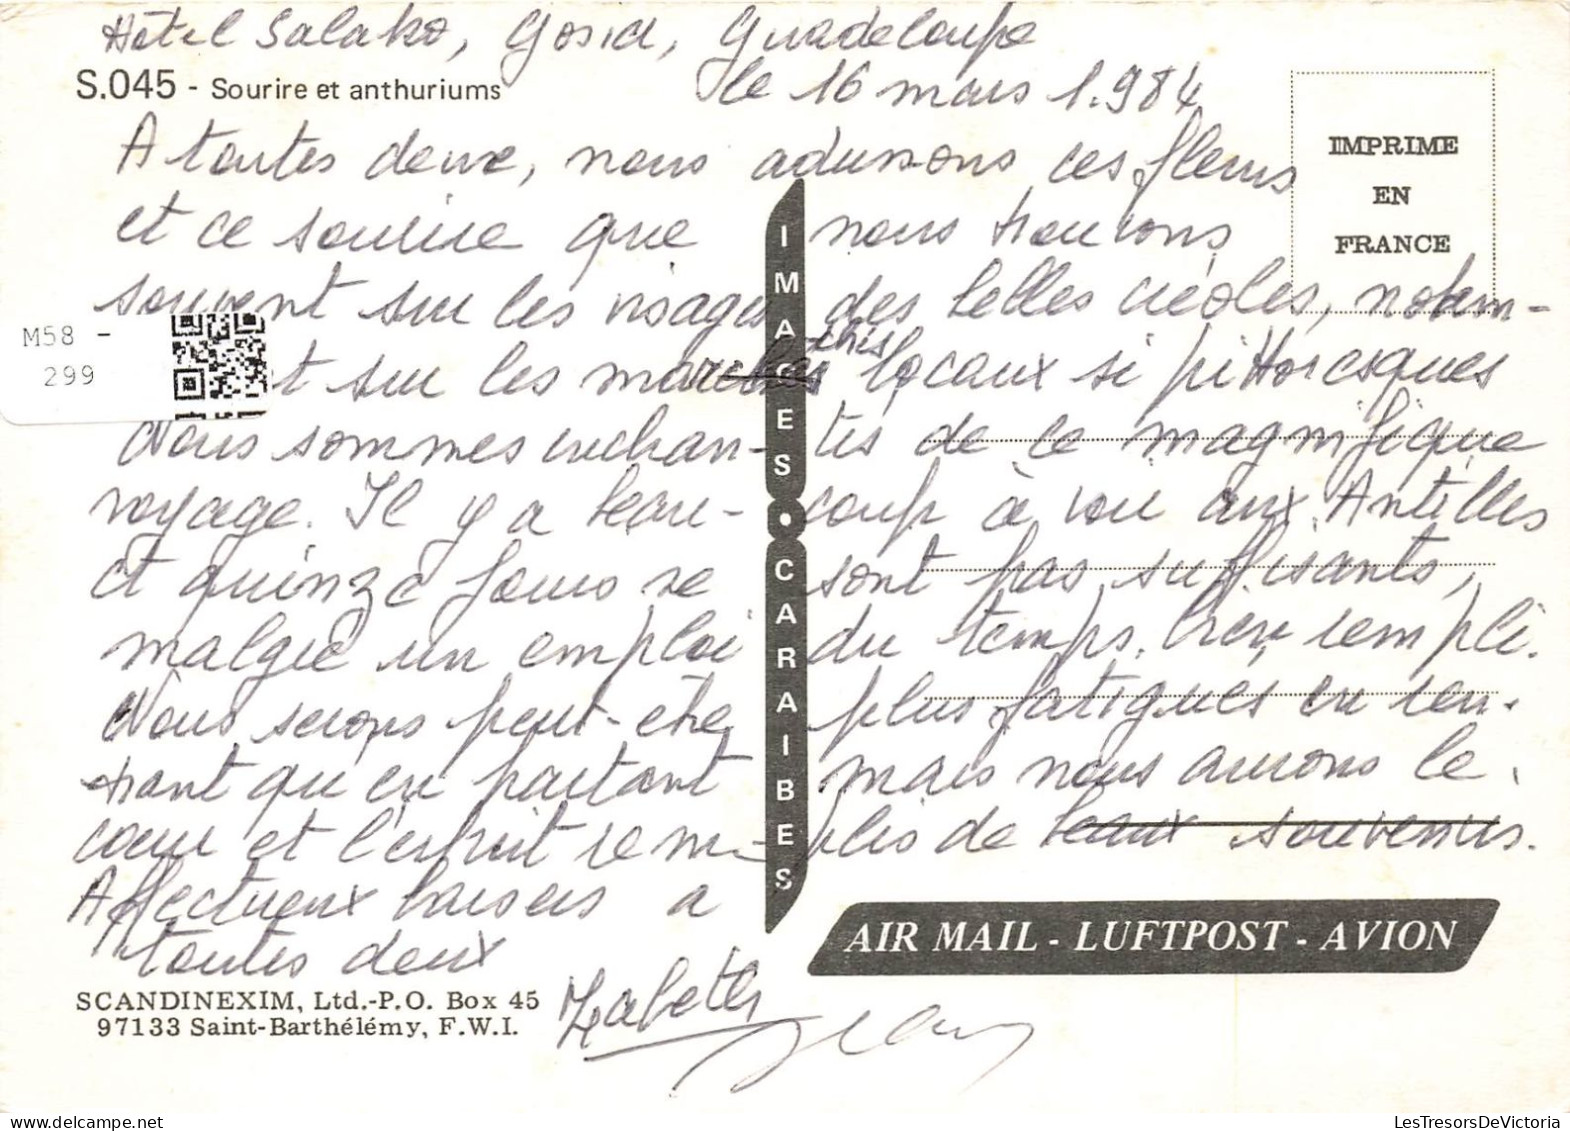 Hôtel Salako, Gosier, Guadeloupe
S.045 - Sourire et anthuriums
le 16 mars 1.984
IMPRIME
EN
FRANCE
A toutes deux, nous adressons ces fleurs
et ce sourire que nous trouvons
souvent sur les visages des belles créoles, notam-
t sur les marchés locaux si pittoresques
Nous sommes enchan-tés de ce magnifique
voyage. Il y a beau-coup à voir aux Antilles
et quinze jours ne sont pas suffisants,
malgré un emploi du temps bien rempli.
Nous serons peut-être plus fatigués en ren-
trant qu'en partant mais nous aurons le
cœur et l'esprit rem-plis de beaux souvenirs.
Affectueux baisers a
toutes deux
Zabeth Jean
IMAGES • CARAIBES
AIR MAIL - LUFTPOST - AVION
SCANDINEXIM, Ltd.-P.O. Box 45
97133 Saint-Barthélémy, F.W.I.
M58 -
299
LesTresorsDeVictoria.com